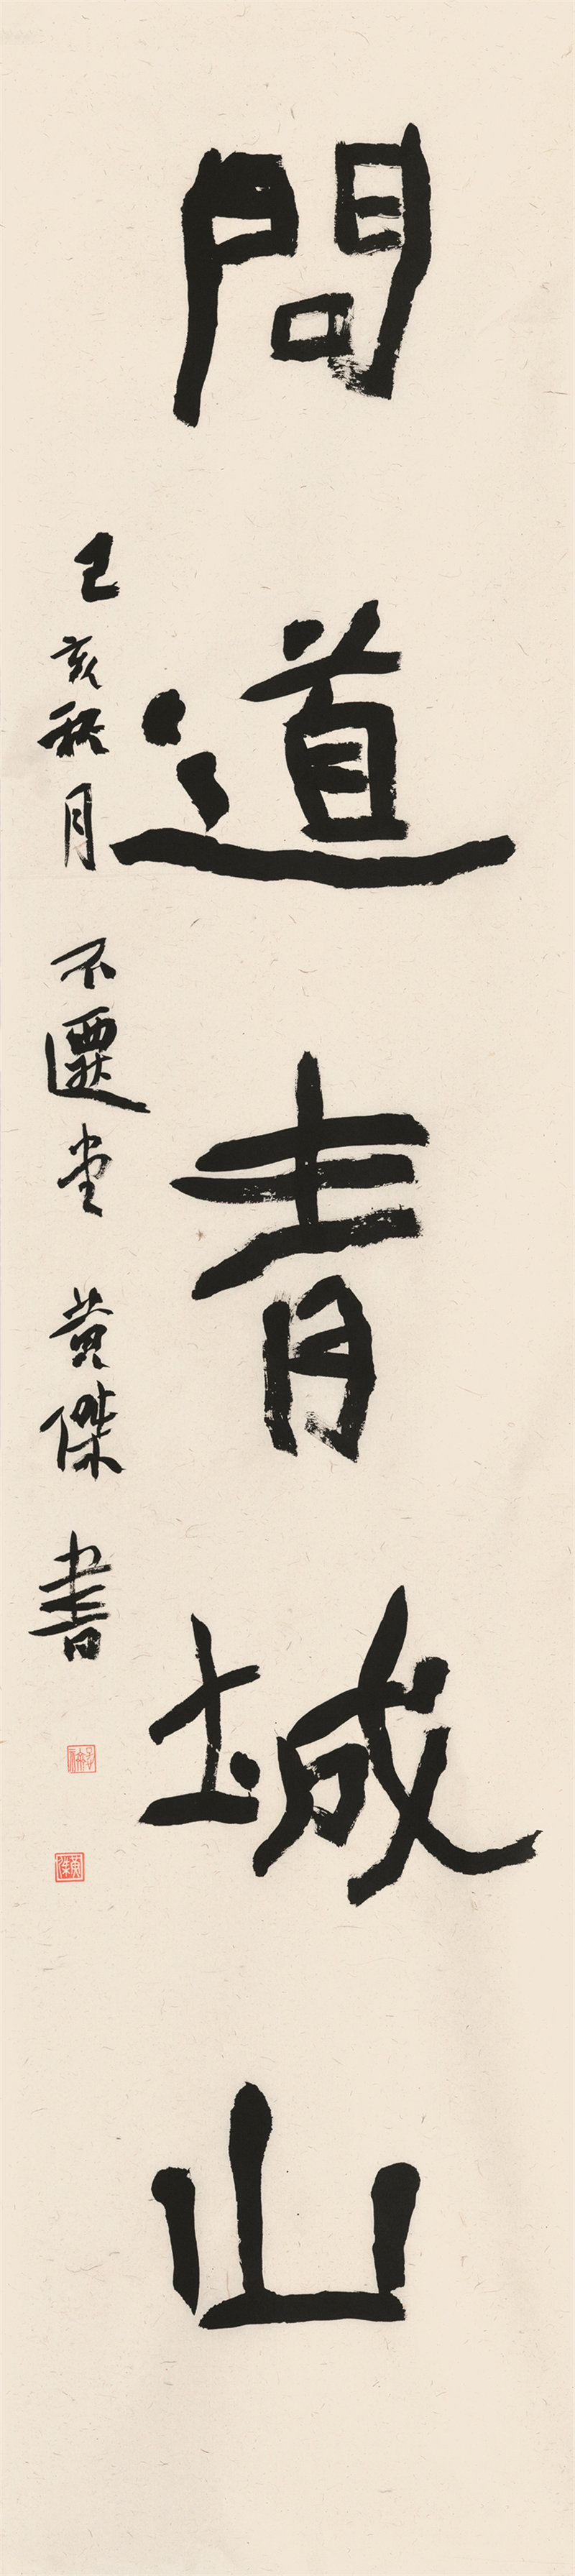 問道青城山
己亥秋月不遷堂黄傑書
黄傑